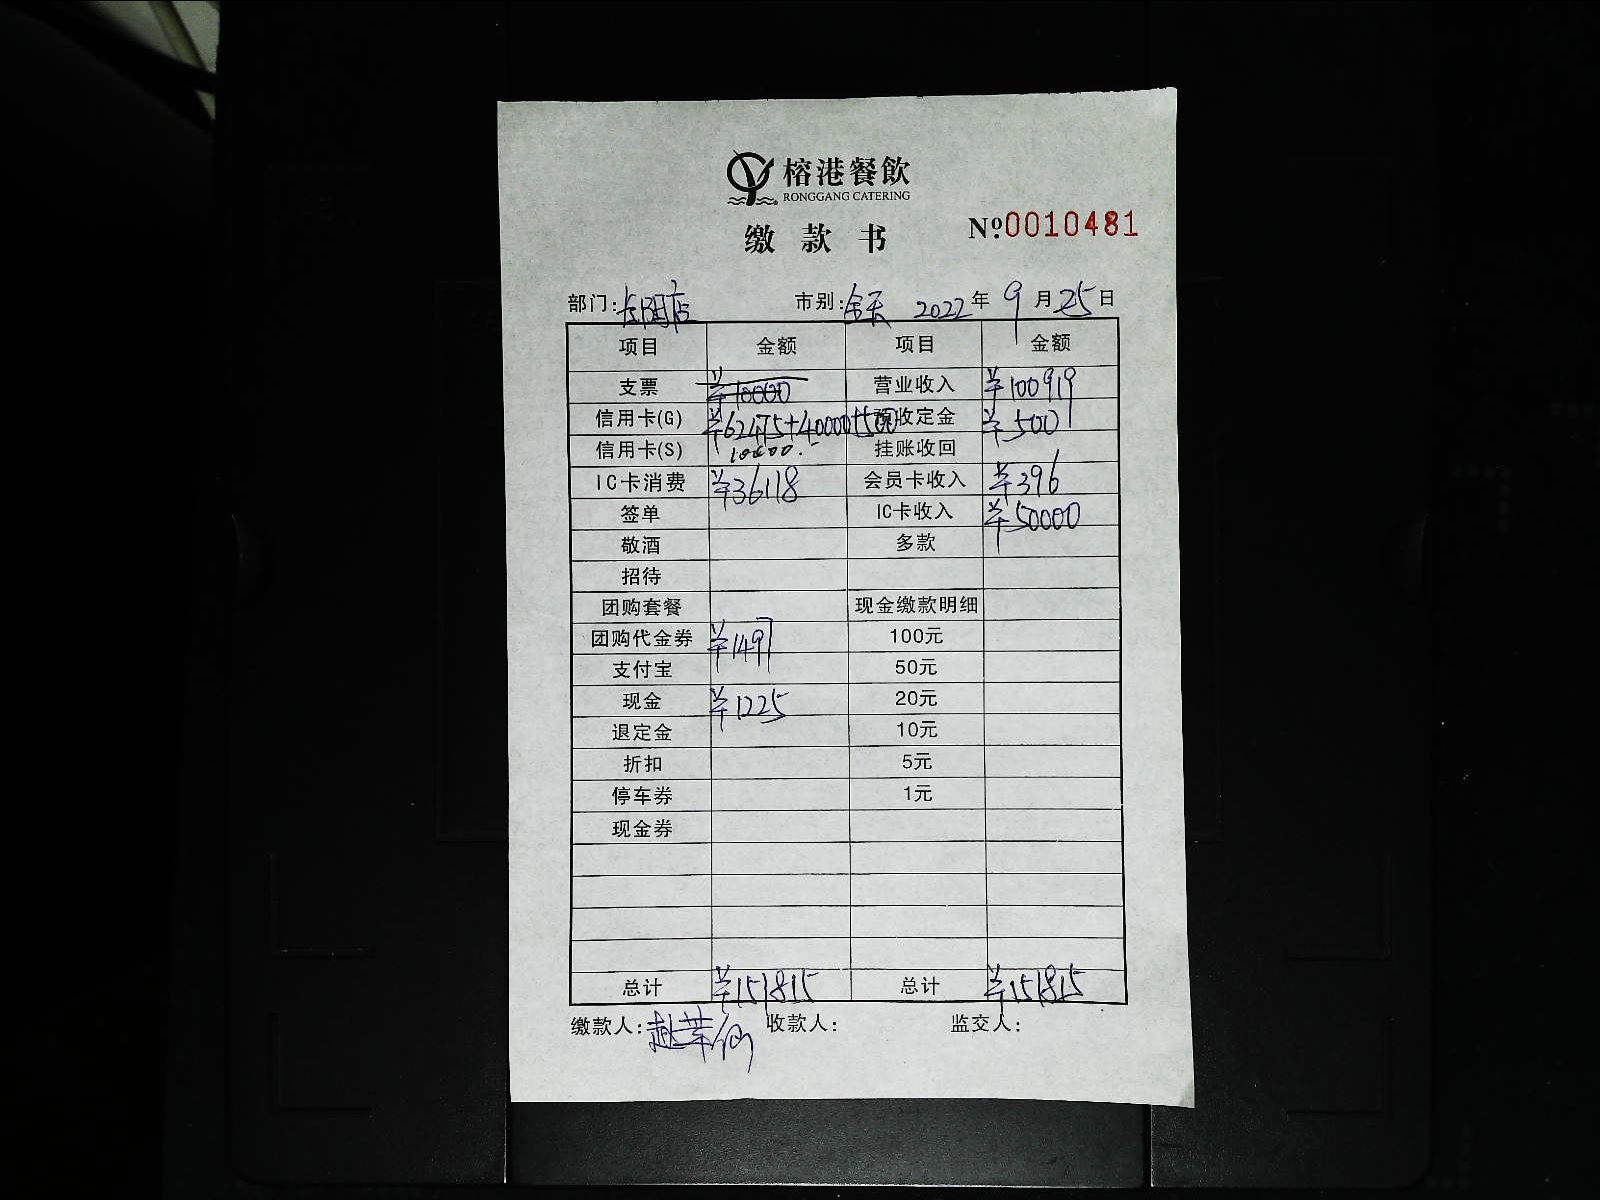 榕港餐飲
RONGGANG CATERING
缴款书
№0010481
部门: 长阳店 市别: 全天 2022年9月25日
项目 金额 项目 金额
支票 ¥10000 营业收入 ¥100919
信用卡(G) ¥62475+40000+500 预收定金 ¥500
信用卡(S) 10000.- 挂账收回
IC卡消费 ¥36118 会员卡收入 ¥396
签单 IC卡收入 ¥50000
敬酒 多款
招待
团购套餐 现金缴款明细
团购代金券 ¥1497 100元
支付宝 50元
现金 ¥1225 20元
退定金 10元
折扣 5元
停车券 1元
现金券
总计 ¥151815 总计 ¥151815
缴款人: 赵荣仙 收款人: 监交人: